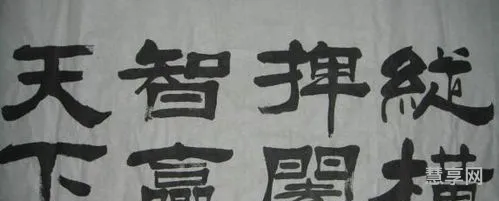 縱橫
捭闔
智贏
天下
慧享网